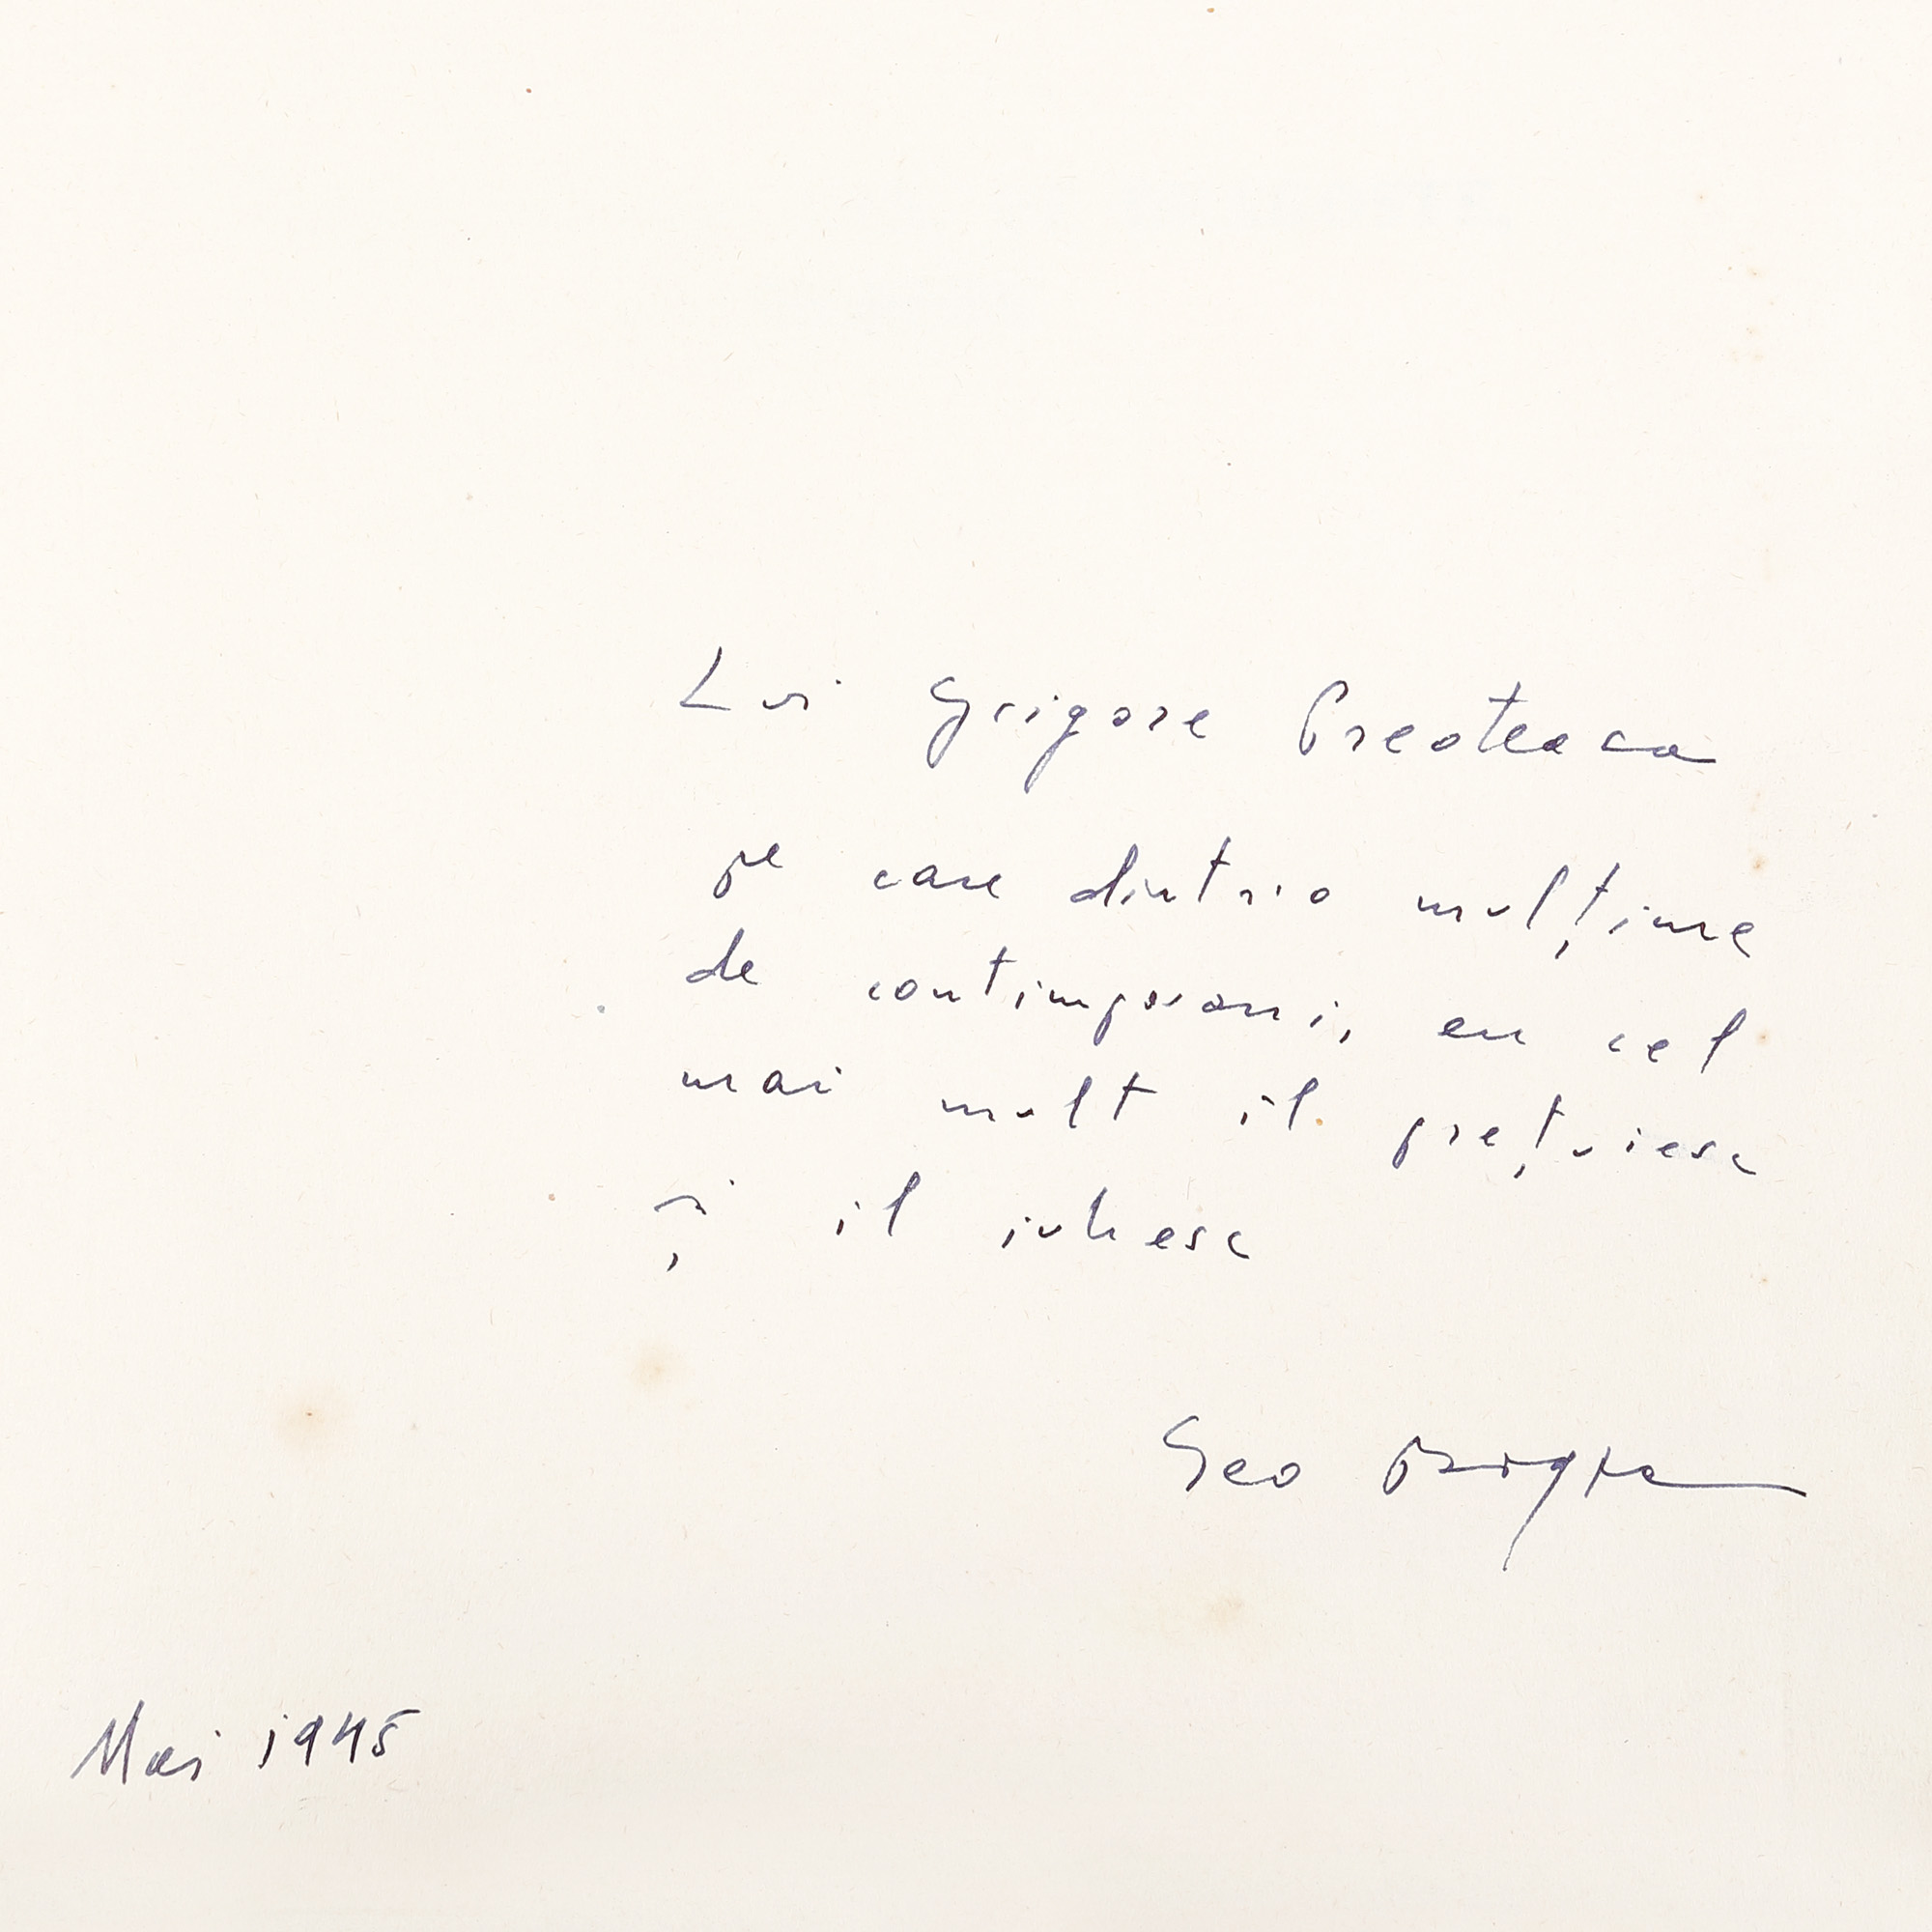 Lui Grigore Preoteasa
pe care dintr'o mulțime
de contimporani, eu cel
mai mult il prețuiesc
și il iubesc
Geo Bogza
Mai 1945